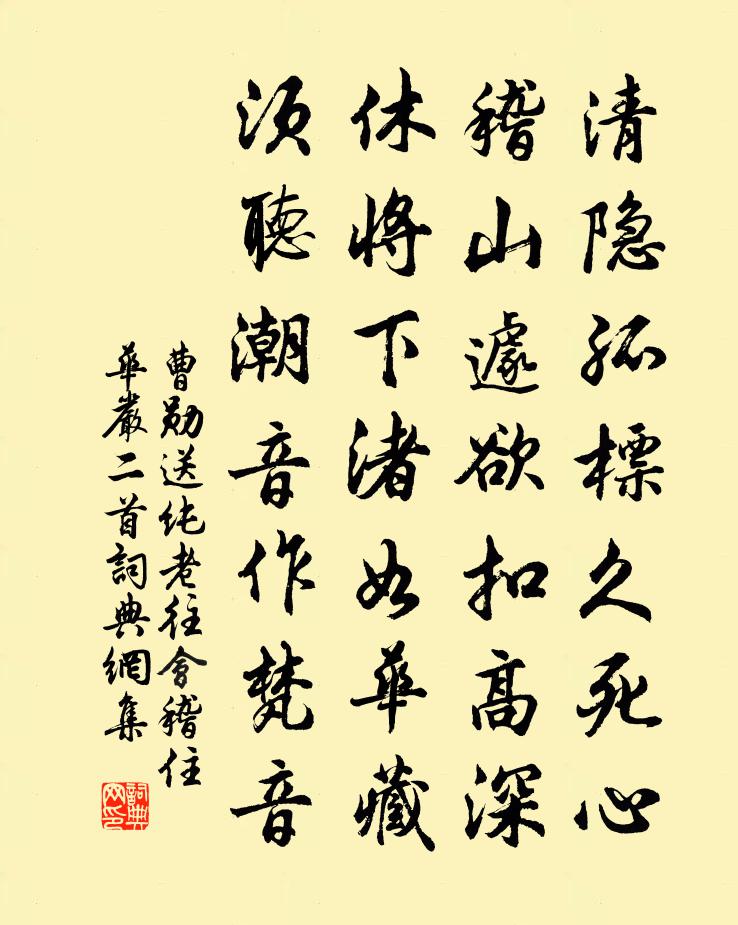 清隐孤標久死心
稽山遽欲扣高深
休將下渚如華藏
須聽潮音作梵音
曹勛送纯老往會稽住
華嚴二首詞典網集
詞典網印